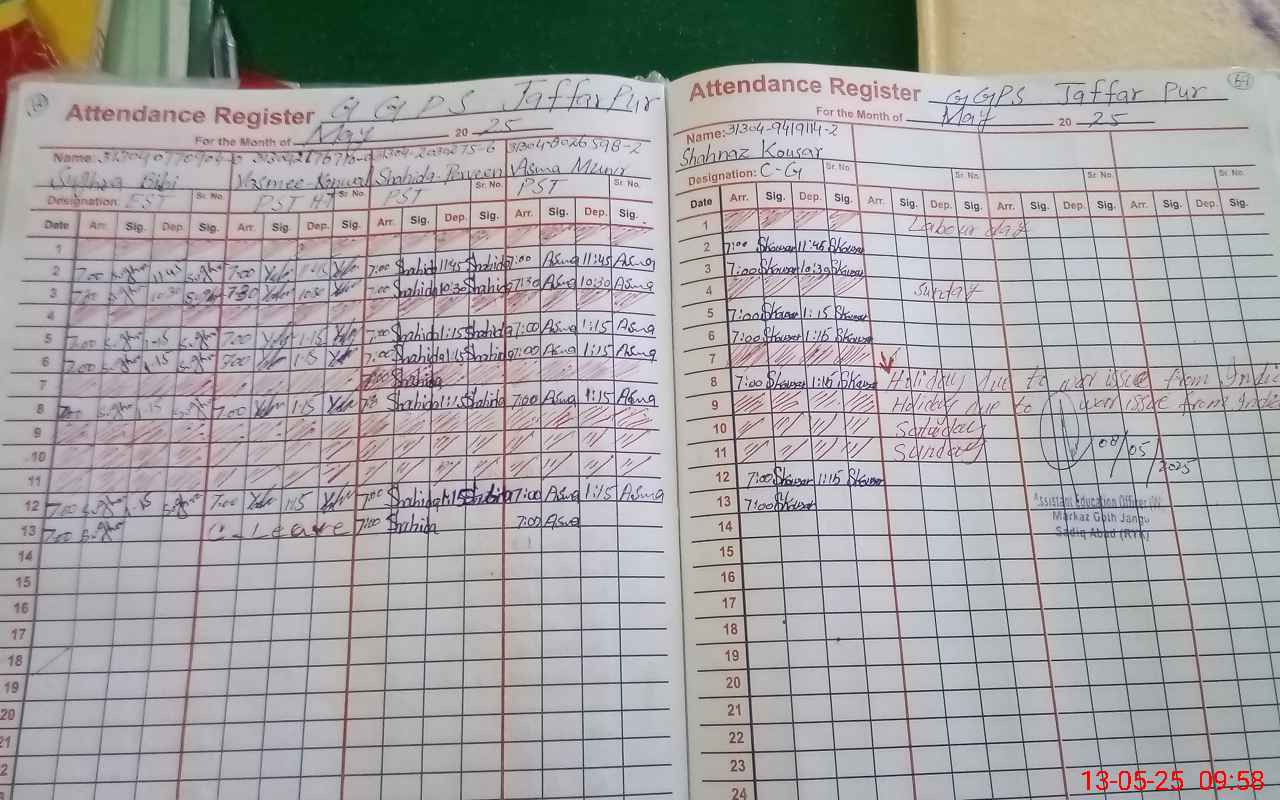 Attendance Register GGPS Jaffar Pur
For the Month of May 20 25
Name:
Sughra Bibi Shahida Parveen Asma Munir
Designation: EST Sr. No. PST HT Sr. No. PST Sr. No. PST Sr. No.
Date Arr. Sig. Dep. Sig. Arr. Sig. Dep. Sig. Arr. Sig. Dep. Sig. Arr. Sig. Dep. Sig.
1
2 7:00 11:45 7:00 11:45 7:00 Shahida 11:45 Shahida 7:00 Asma 11:45 Asma
3 7:00 10:30 7:30 10:30 7:00 Shahida 10:30 Shahida 7:30 Asma 10:30 Asma
4
5 7:00 1:15 7:00 1:15 7:00 Shahida 1:15 Shahida 7:00 Asma 1:15 Asma
6 7:00 1:15 7:00 1:15 7:00 Shahida 1:15 Shahida 7:00 Asma 1:15 Asma
7 7:00 Shahida
8 7:00 1:15 7:00 1:15 Shahida 1:15 Shahida 7:00 Asma 1:15 Asma
9
10
11
12 7:00 1:15 7:00 1:15 7:00 Shahida 1:15 Shahida 7:00 Asma 1:15 Asma
13 7:00 C-Leave 7:00 Shahida 7:00 Asma
14
15
16
17
18
19
20
21
2
Attendance Register GGPS Jaffar Pur
For the Month of May 20 25
Name: 31304-9419114-2
Shahnaz Kousar
Designation: C-G Sr. No. Sr. No. Sr. No. Sr. No.
Date Arr. Sig. Dep. Sig. Arr. Sig. Dep. Sig. Arr. Sig. Dep. Sig. Arr. Sig. Dep. Sig.
1 Labour day
2 7:00 Skousar 11:45 Skousar
3 7:00 Skousar 10:30 Skousar
4 Sunday
5 7:00 Skousar 1:15 Skousar
6 7:00 Skousar 1:15 Skousar
7
8 7:00 Skousar 1:15 Skousar Holiday due to war issue from India
9 Holiday due to war issue from India
10 Saturday
11 Sunday
/05/2025
12 7:00 Skousar 1:15 Skousar
13 7:00 Skousar
Assistant Education Officer (W)
Markaz Goth Jangu
Sadiq Abad (RYK)
14
15
16
17
18
19
20
21
22
23
24
13-05-25 09:58